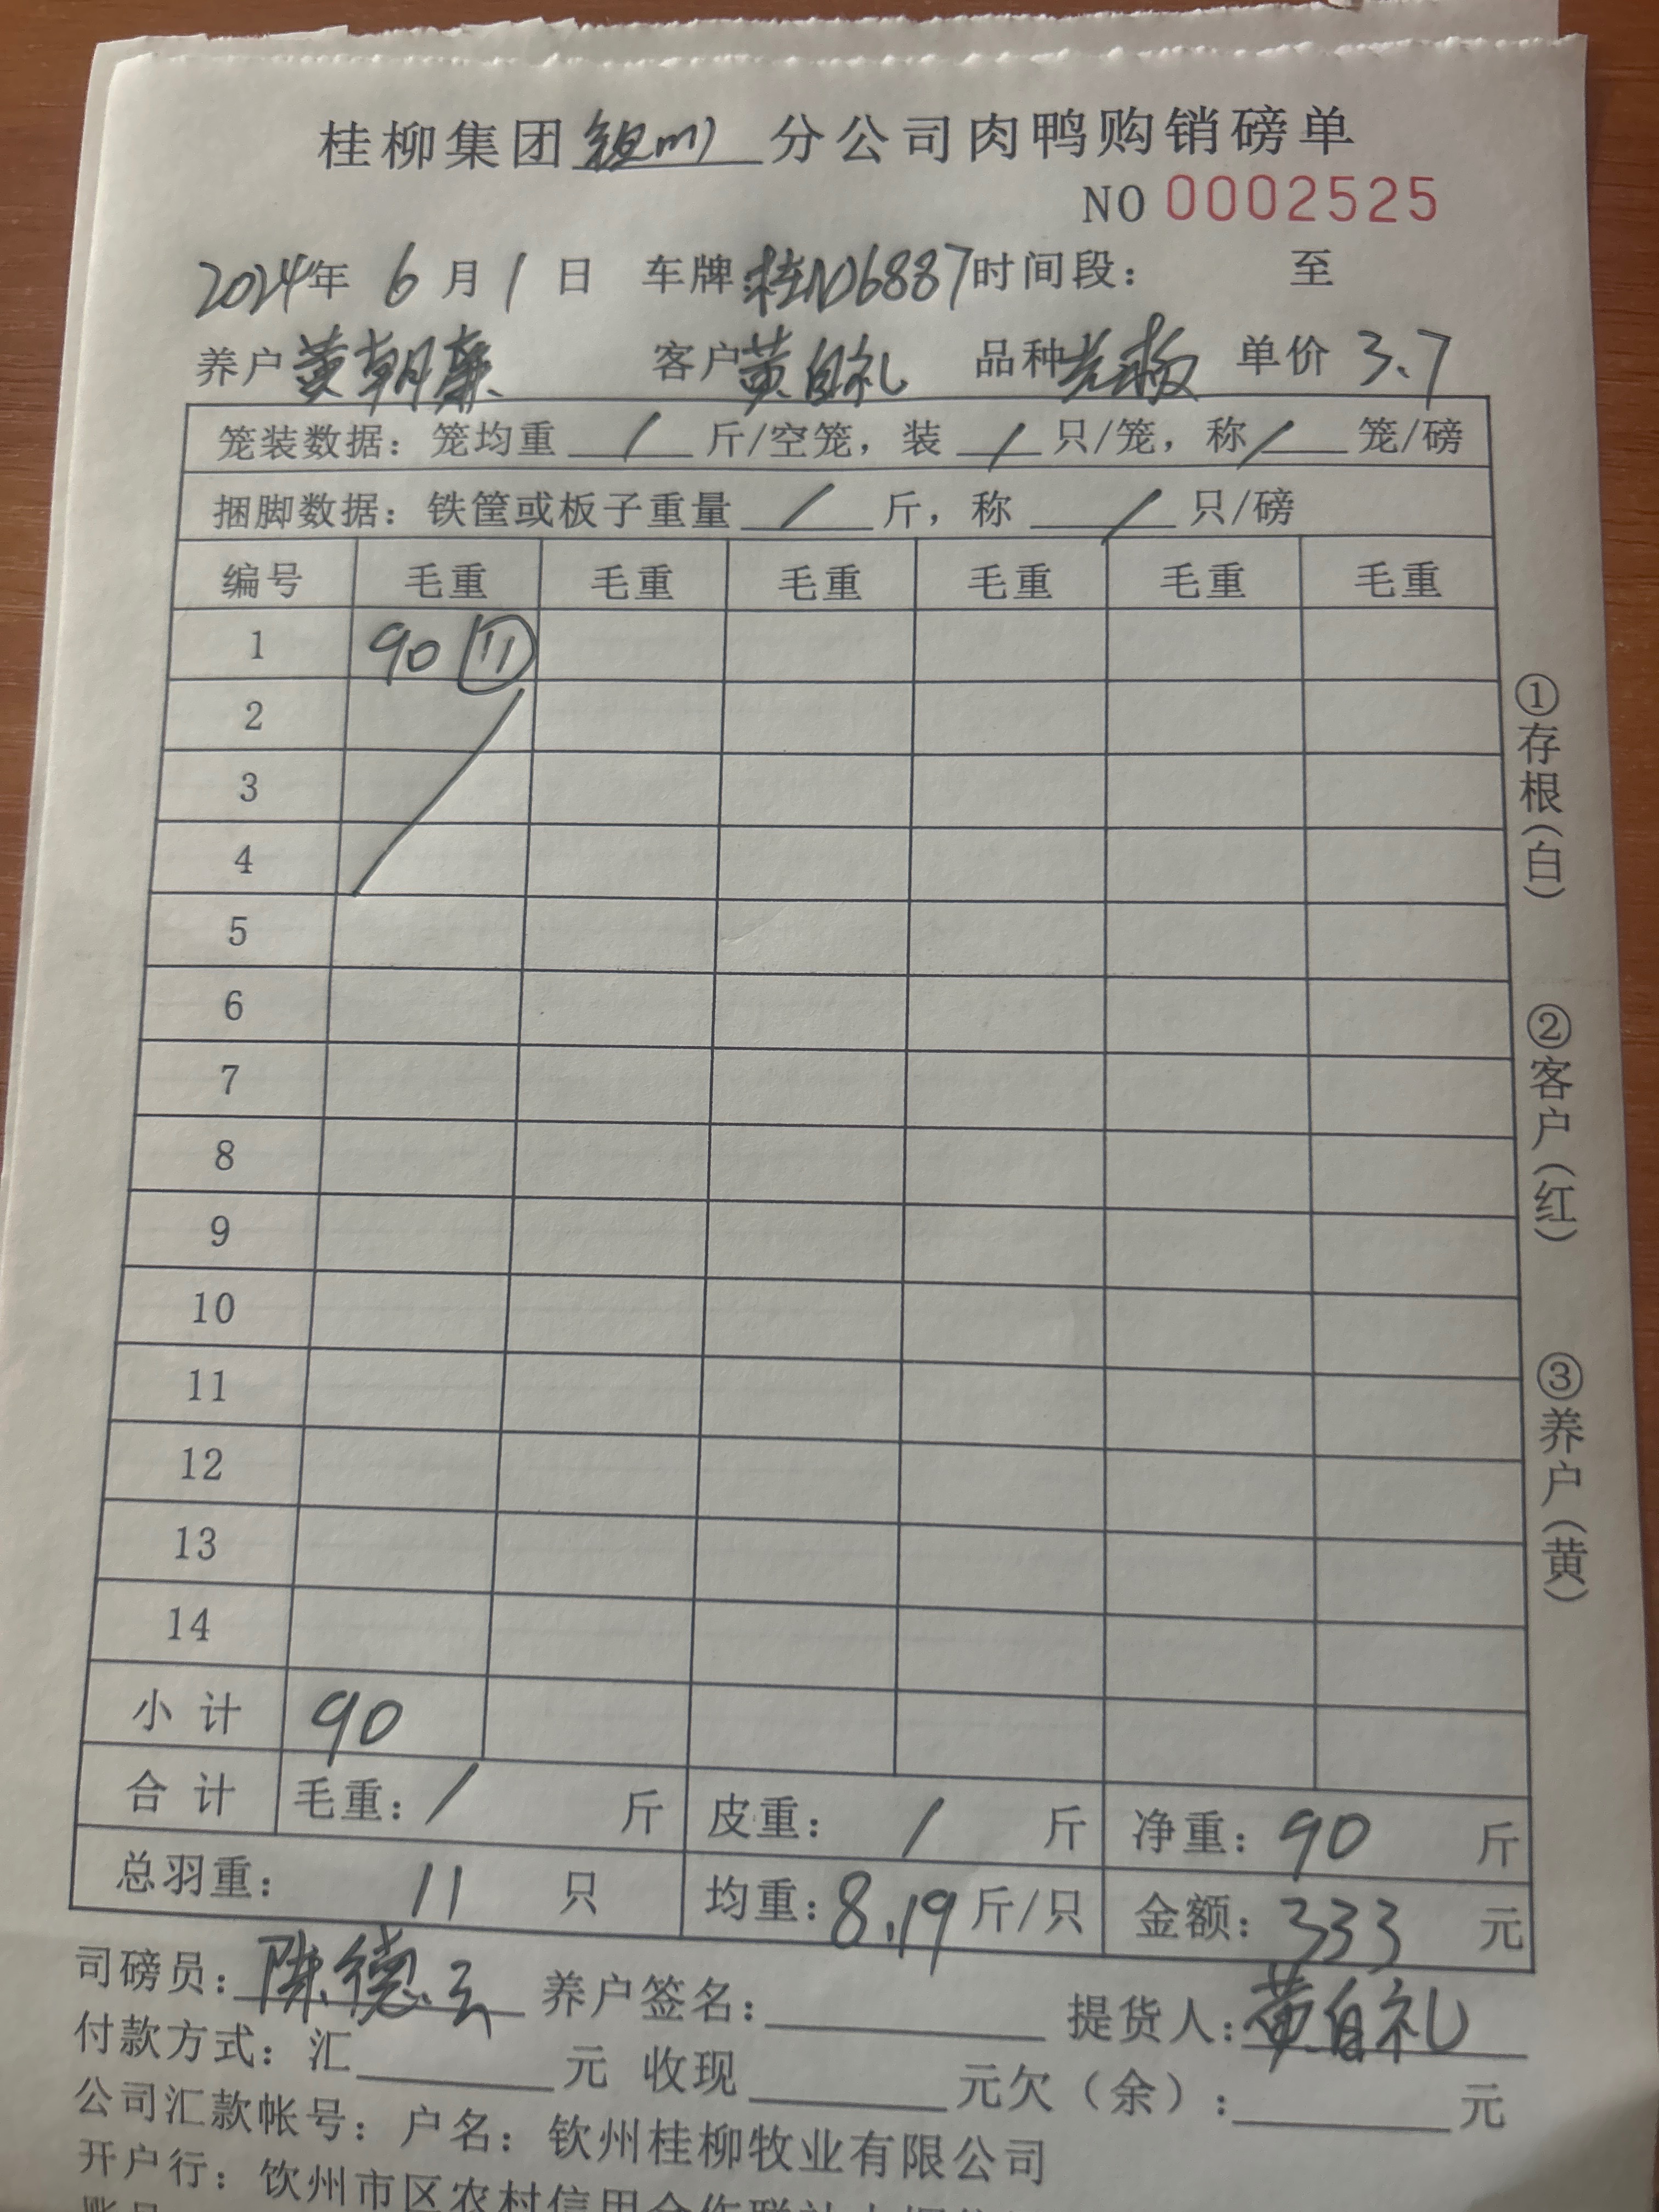 桂柳集团钦州分公司肉鸭购销磅单
NO 0002525
2024年 6月1日 车牌:桂ND6887时间段: 至
养户黄朝 客户黄自礼 品种 单价 3.7
笼装数据: 笼均重 / 斤/空笼, 装 / 只/笼, 称 / 笼/磅
捆脚数据: 铁筐或板子重量 / 斤, 称 / 只/磅
编号 毛重 毛重 毛重 毛重 毛重 毛重
1 90 ⑪
2
3
4
5
6
7
8
9
10
11
12
13
14
小计 90
合计 毛重: / 斤 皮重: / 斤 净重: 90 斤
总羽重: 11 只 均重: 8.19斤/只 金额: 333 元
司磅员: 陈德云 养户签名: 提货人: 黄自礼
付款方式: 汇 元 收现 元欠（余）: 元
公司汇款帐号: 户名: 钦州桂柳牧业有限公司
开户行: 钦州市区农村信用合作联社
①存根(白)
②客户(红)
③养户(黄)